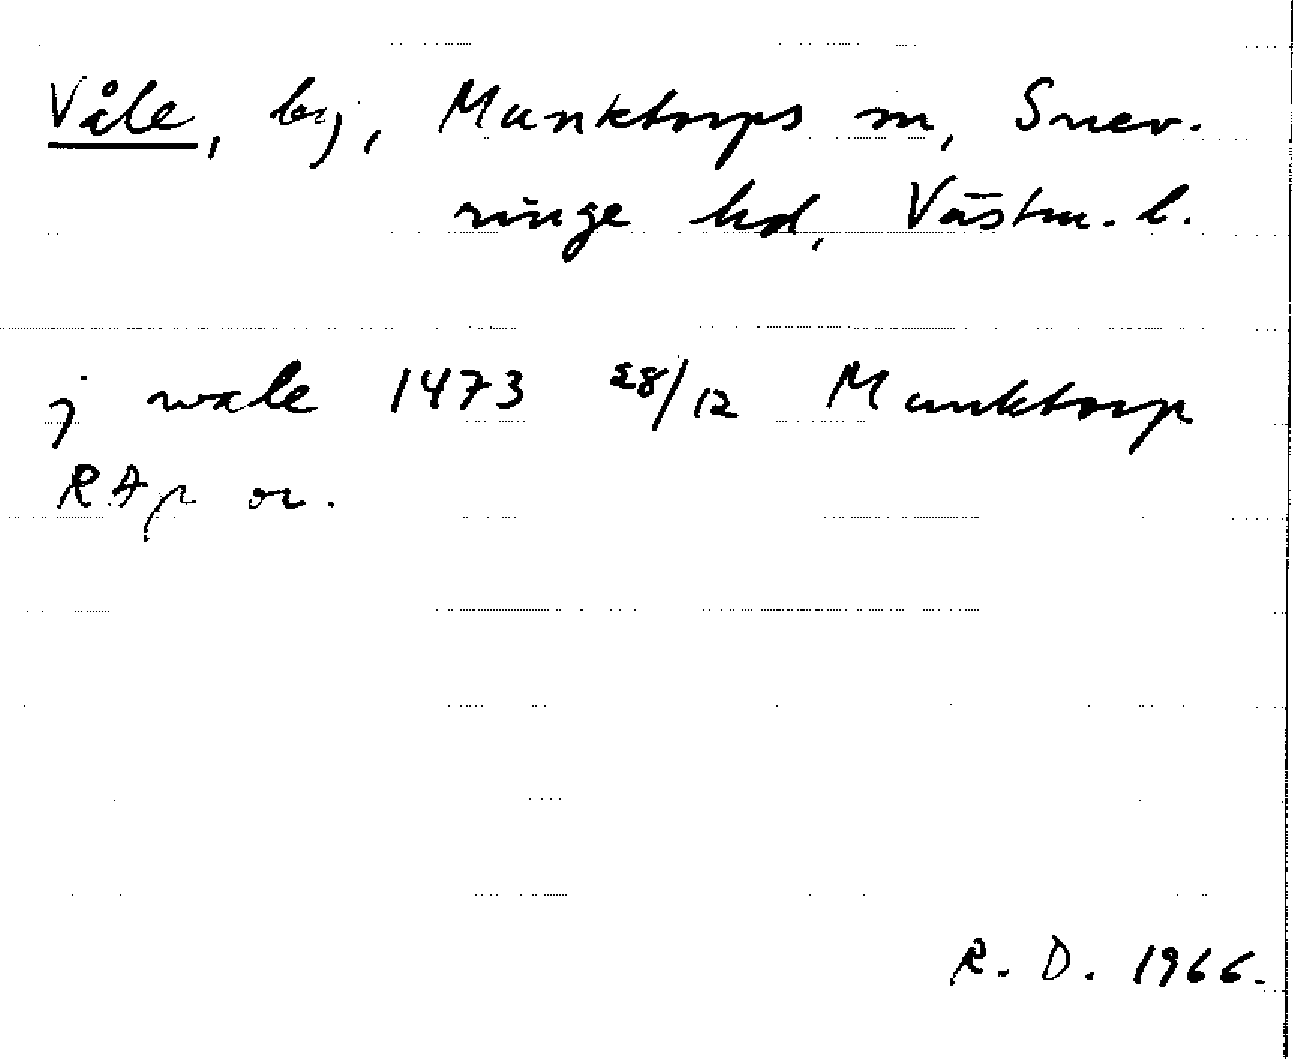 Våle, by, Munktorps sn, Snev-
ringe hd, Västm. l.
j wale 1473 28/12 Munktorp
RAp or.
R. D. 1966.